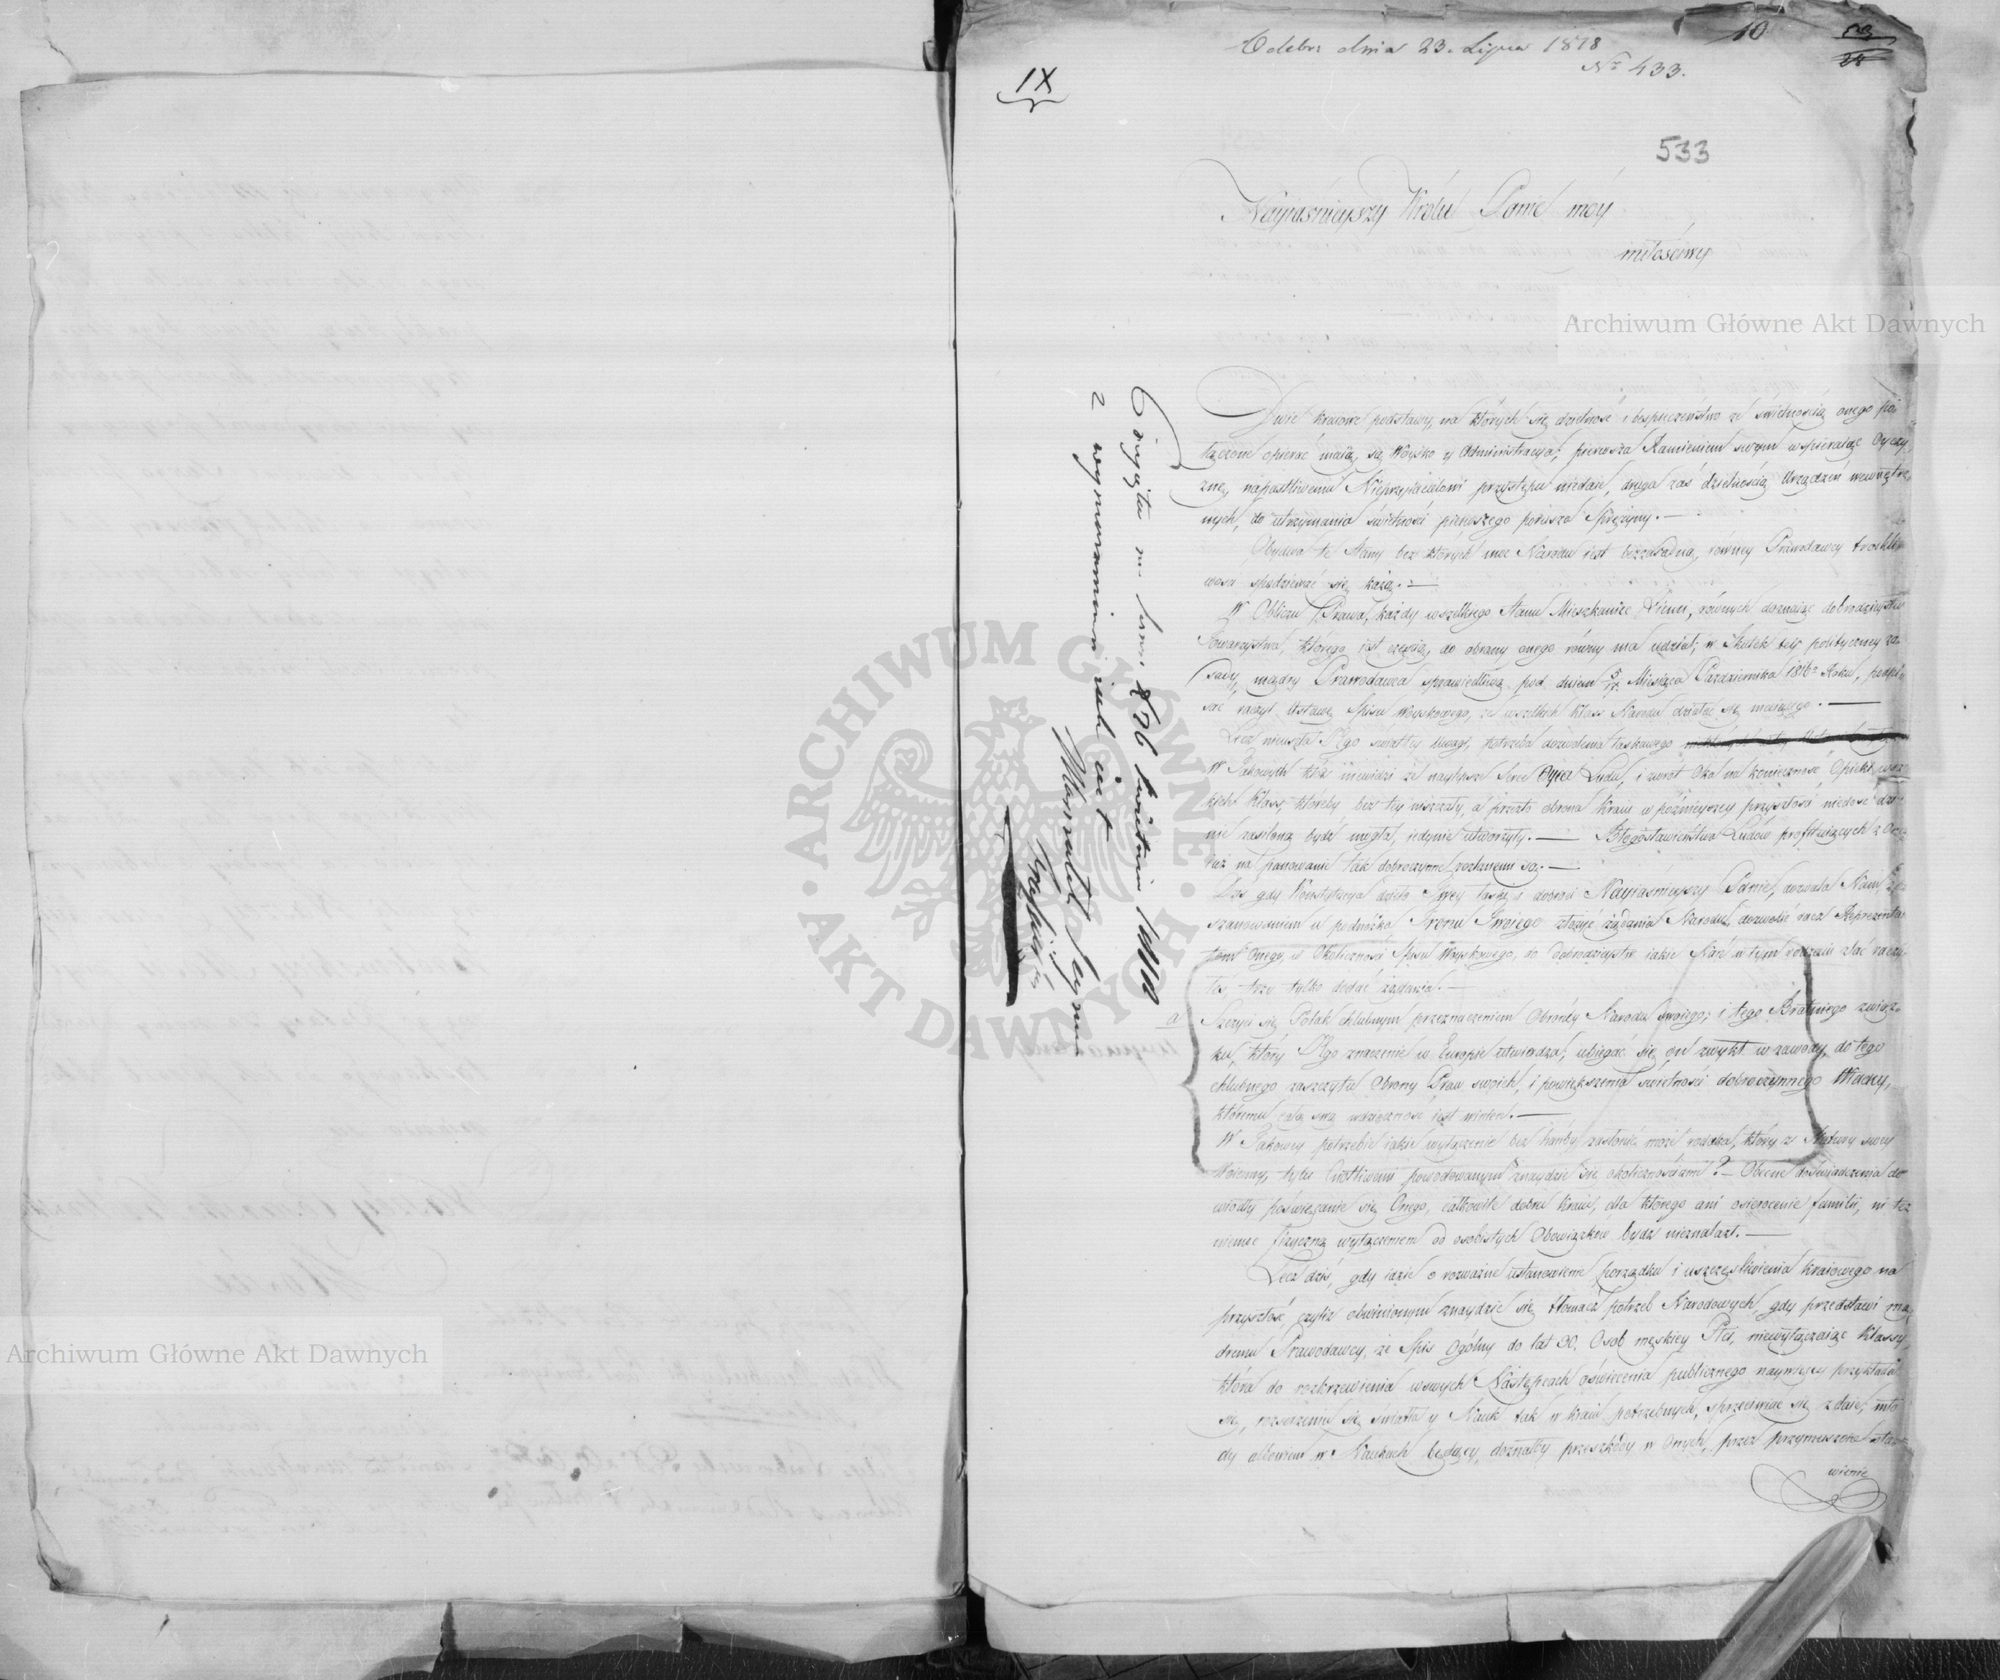 Odebr: dnia 23. Lipca 1818
N° 433.
10
IX
533
Nayiaśnieyszy Królu Panie móy
miłościwy
Dwie kraiowe podstawy, na których się dzielność i bespieczeństwo ze świetnością onego po-
łączone opierać maią, są Woysko y Administracya; pierwsza Ramieniem swym wspieraiąc Oyczy-
znę, napastliwemu Nieprzyiacielowi przystępu niedaie, druga zaś dzielnością Urządzeń wewnętrz-
nych, do utrzymania świetności pierwszego porusza Sprężyny. —
Obydwa te Stany bez których moc Narodu iest bezzasadną, równey Prawodawcy troskli-
wości spodziewać się każą. —
W Obliczu Prawa, każdy wszelkiego Stanu Mieszkaniec Ziemi, równych doznaiąc dobrodzieystw
Towarzystwa, którego iest częścią, do obrony onego równy ma udział; w Skutek tey polityczney za-
sady, mądry Prawodawca sprawiedliwie pod dniem Miesiąca Października 1816° Roku, podpi-
sać raczył Ustawę Spisu Woyskowego, ze wszelkich Klass Narodu działać się maiącego. —
Lecz nieuszła Jego światłey Uwagi, potrzeba dozwolenia łaskawego
W Takowych któż niewidzi że naylepsze Serce Oyca Ludu, i zwrot Oka na konieczność Opieki
kich Klass, któreby bez tey niszczały, a przeto obrona Kraiu w późnieyszey przyszłości niedość
nie zasiloną bydź mogła, iedynie utworzyły. — Błogosławieństwa Ludów profituiących z Ocz
tuż na panowanie tak dobroczynne zesłanemi są. —
Lecz gdy Konstytucya dzieło Twey łaski i dobroci Nayiaśnieyszy Panie, dozwala Nam z po-
szanowaniem u podnóżka Tronu Twoiego złożyć żądania Narodu, dozwolić racz Reprezentan-
tom Onego, w Okoliczności Spisu Woyskowego, do Dobrodzieystw iakie Nam w tym rodzaiu zlać raczy-
łeś, trzy tylko dodać żądania. —
a Szczyci się Polak chlubnym przeznaczeniem Obrońcy Narodu swoiego, i tego Bratniego związ-
ku, który Jego znaczenie w Europie utwierdza; ubiegać się on zwykł w zawody, do tego
chlubnego zaszczytu Obrony Praw swoich, i powiększenia świetności dobroczynnego Władzcy,
któremu całą swą wdzięczność iest winien. —
W Takowey potrzebie iakie wyłączenie bez hańby zasłonić może rodaka, który z Natury swey
Woienny, tylu Cnotliwemi powodowanym znaydzie się okolicznościami? — Obecne doświadczenia do-
wiodły poświęcanie się Onego, całkowite dobru Kraiu, dla którego ani osierocenie familii, ni też
niemoc fizyczna wyłączeniem od osobistych Obowiązków bydź nieznalazł. —
Lecz dziś, gdy idzie o rozważne ustanowienie porządku i uszczęśliwienia kraiowego na
przyszłość, czyliż obwinionym znaydzie się tłomacz potrzeb Narodowych, gdy przedstawi mą-
dremu Prawodawcy, że Spis Ogólny do lat 30. Osob męskiey Płci, niewyłączaiąc Klassy,
która do rozkrzewienia w swych Następcach oświecenia publicznego naywięcey przykłada
się, rozszerzeniu się światła y Nauk tak w kraiu potrzebnych, sprzeciwiać się zdaie; mło-
dy albowiem w Naukach będący, doznałby przeszkody w Onych, przez przymuszone sta-
wienie
Przyjęta na sessyi 8/26 kwietnia 1818
z wymazaniem iak iest
Marszałek Seymu
Krasiński
Archiwum Główne Akt Dawnych
Archiwum Główne Akt Dawnych
ARCHIWUM GŁÓWNE · AKT DAWNYCH ·